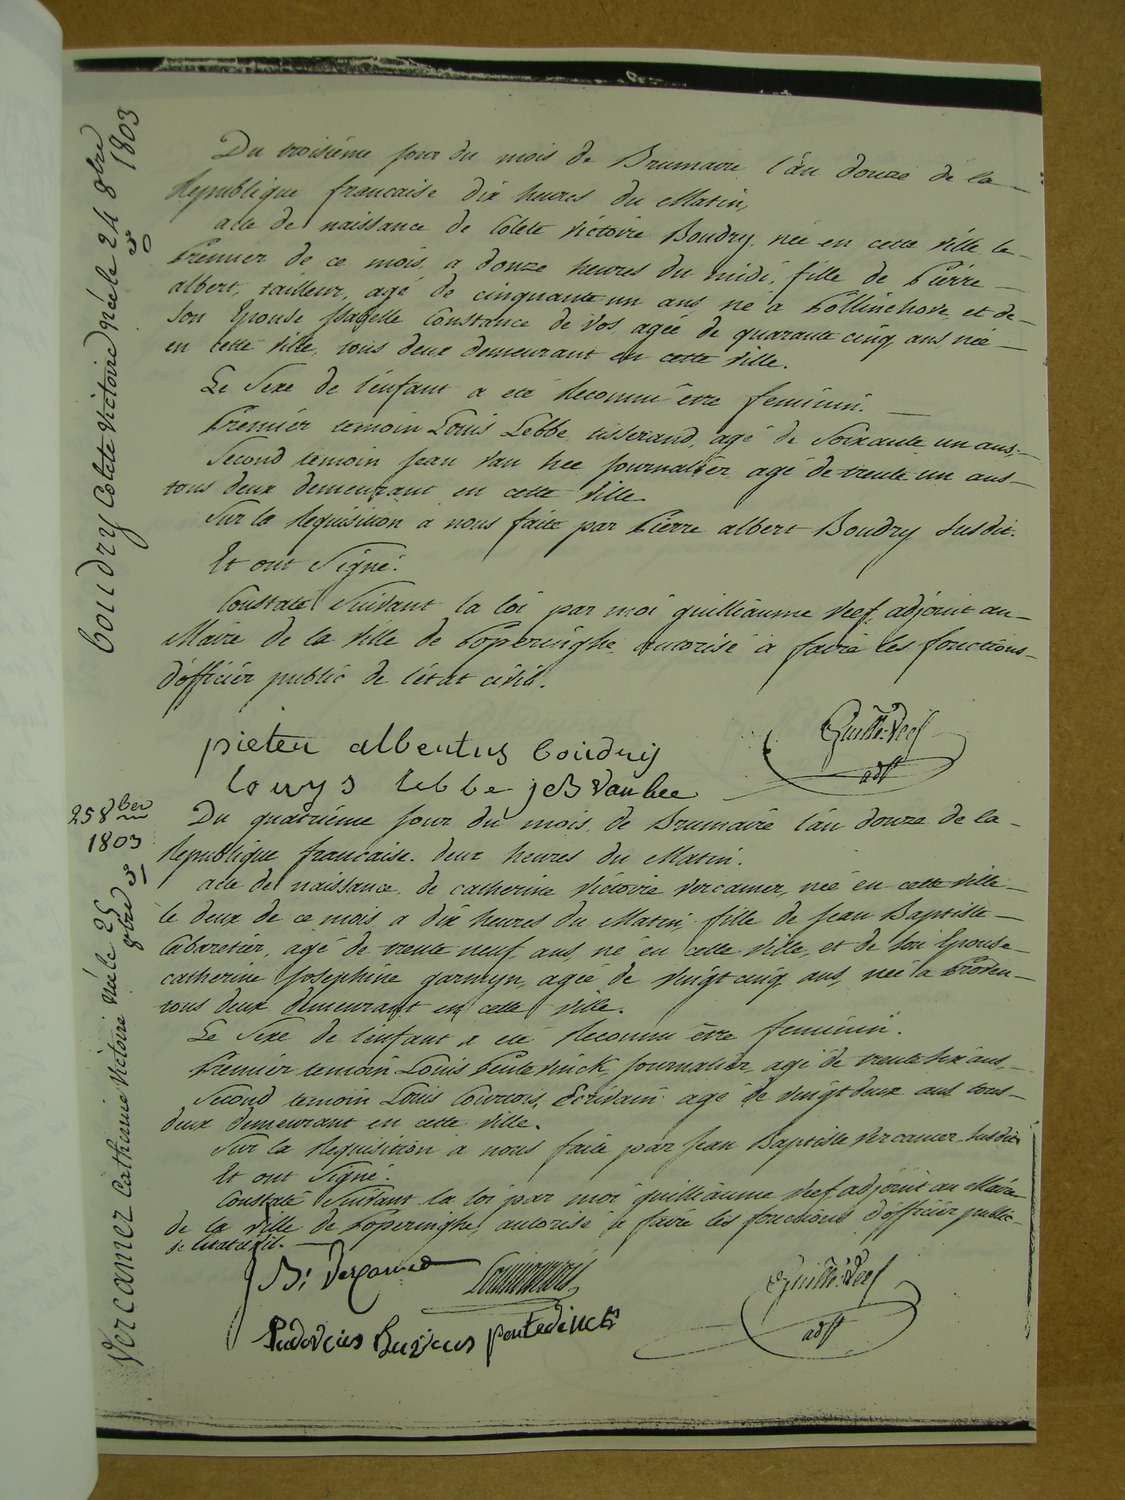 Boudry Colete Victoire née le 24 8bre 1803
30
Du troisiéme jour du mois de Brumaire l'an douze de la
Republique francaise dix heures du Matin,
acte de naissance de Colete Victoire Boudry, née en cette Ville le
Premier de ce mois a douze heures du midi, fille de Piérre
albert, tailleur, agé de cinquante un ans né a Pollinchove, et de
son Epouse Isabelle Constance de Vos agée de quarante cinq ans, née
en cette ville, tous deux demeurant en cette Ville.
Le Sexe de l'enfant a eté Reconnu être feminin.
Premiér temoin Louis Lebbe, tisserand, agé de Soixante un ans,
Second temoin Jean Van hee journaliér, agé de trente un ans
tous deux demeurant en cette Ville.
Sur la Requisition a nous faite par Piérre albert Boudry Susdit.
Et ont Signé.
Constaté Suivant la loi par moi guilliaume Veef, adjoint au
Maire de la Ville de Poperinghe, autorisé a faire les fonctions
d'officiér public de l'état civil.
pieter albertus boudry
Guille. Veef
adjt
louys lebbe j B Van hee
25 8ber
1803
Vercamer Catharine Victoire née le 25 8bre
31
Du quatriéme jour du mois de Brumaire l'an douze de la
Republique francaise. deux heures du Matin.
acte de naissance de catherine Victoire Vercamer, née en cette Ville
le deux de ce mois a dix heures du Matin, fille de Jean Baptiste
Cabaretiér, agé de trente neuf ans, né en cette Ville, et de Son Epouse
catherine Josephine garmyn, agée de Vingt cinq ans, née a Proven
tous deux demeurant en cette Ville.
Le Sexe de l'enfant a eté Reconnu être feminin.
Premier temoin Louis Pentevinck, journalier, agé de trente six ans,
Second temoin Louis Courtois, Ecrivain agé de Vingt deux ans tous
deux demeurant en cette Ville.
Sur la Requisition a nous faite par Jean Baptiste Vercamer Susdit
Et ont Signé.
Constaté Suivant la loi par moi guilliaume Veef adjoint au Maire
de la Ville de Poperinghe, autorisé a faire les fonctions d'officiér public
de l'état civil.
J B: Vercamer
Guille. Veef
adjt
Ludovicus